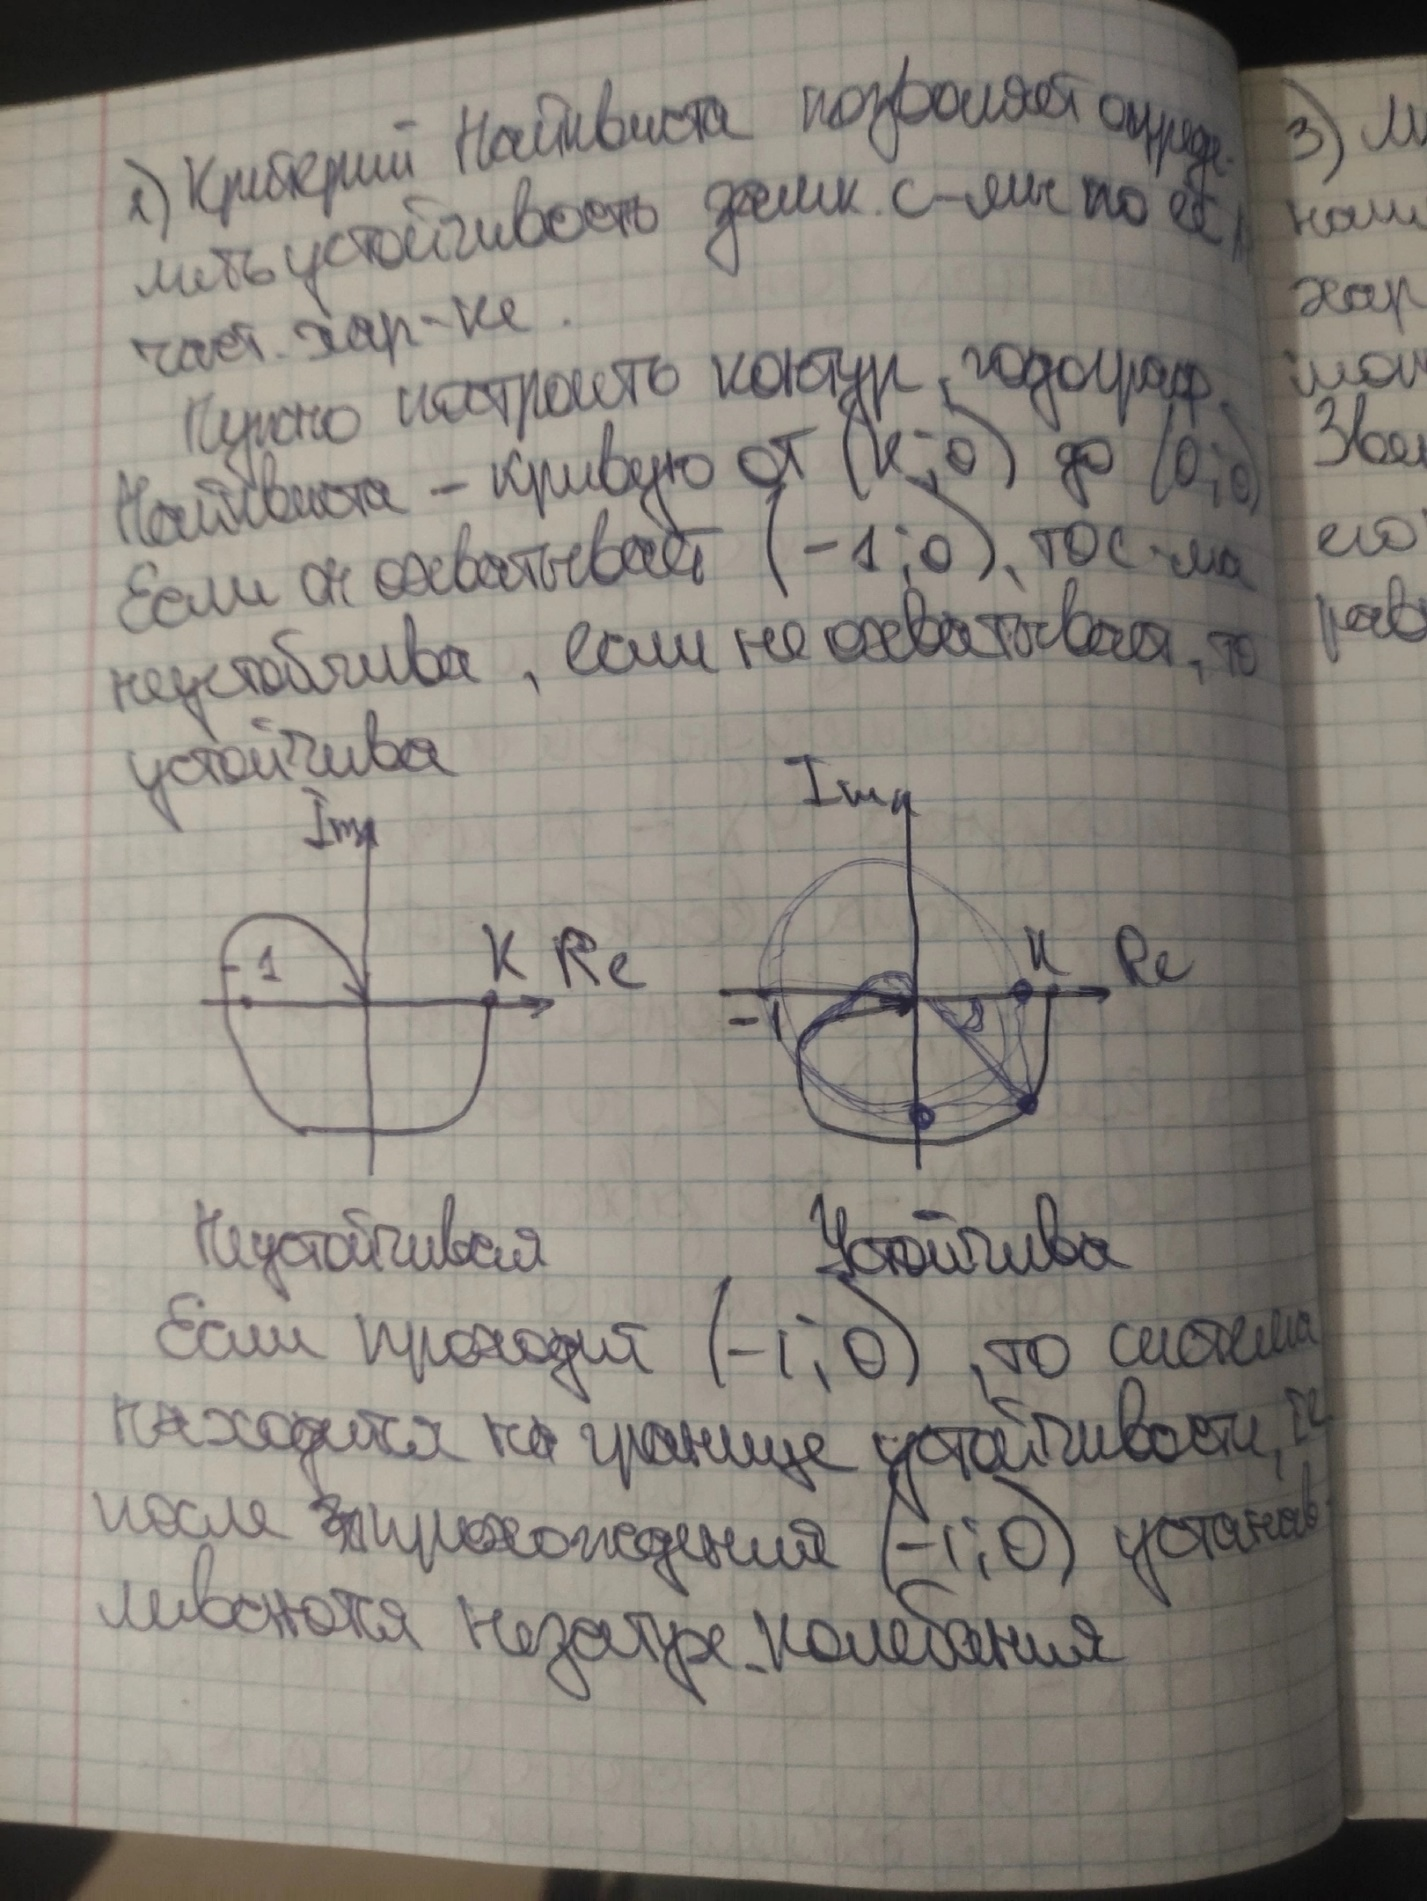 2) Критерий Найквиста позволяет опреде-
лить устойчивость замк. с-мы по её
част. хар-ке.
Нужно построить контур, годограф
Найквиста - кривую от (k; 0) до (0; 0)
Если он охватывает (-1; 0), то с-ма
неустойчива, если не охватывает, то
устойчива
Im
-1
K Re
Im
K Re
-1
Неустойчивая
Устойчива
Если проходит (-1; 0), то система
находится на границе устойчивости, тк
после прохождения (-1; 0) устанав-
ливаются незатух. колебания
3)
хар
Зве
его
рав